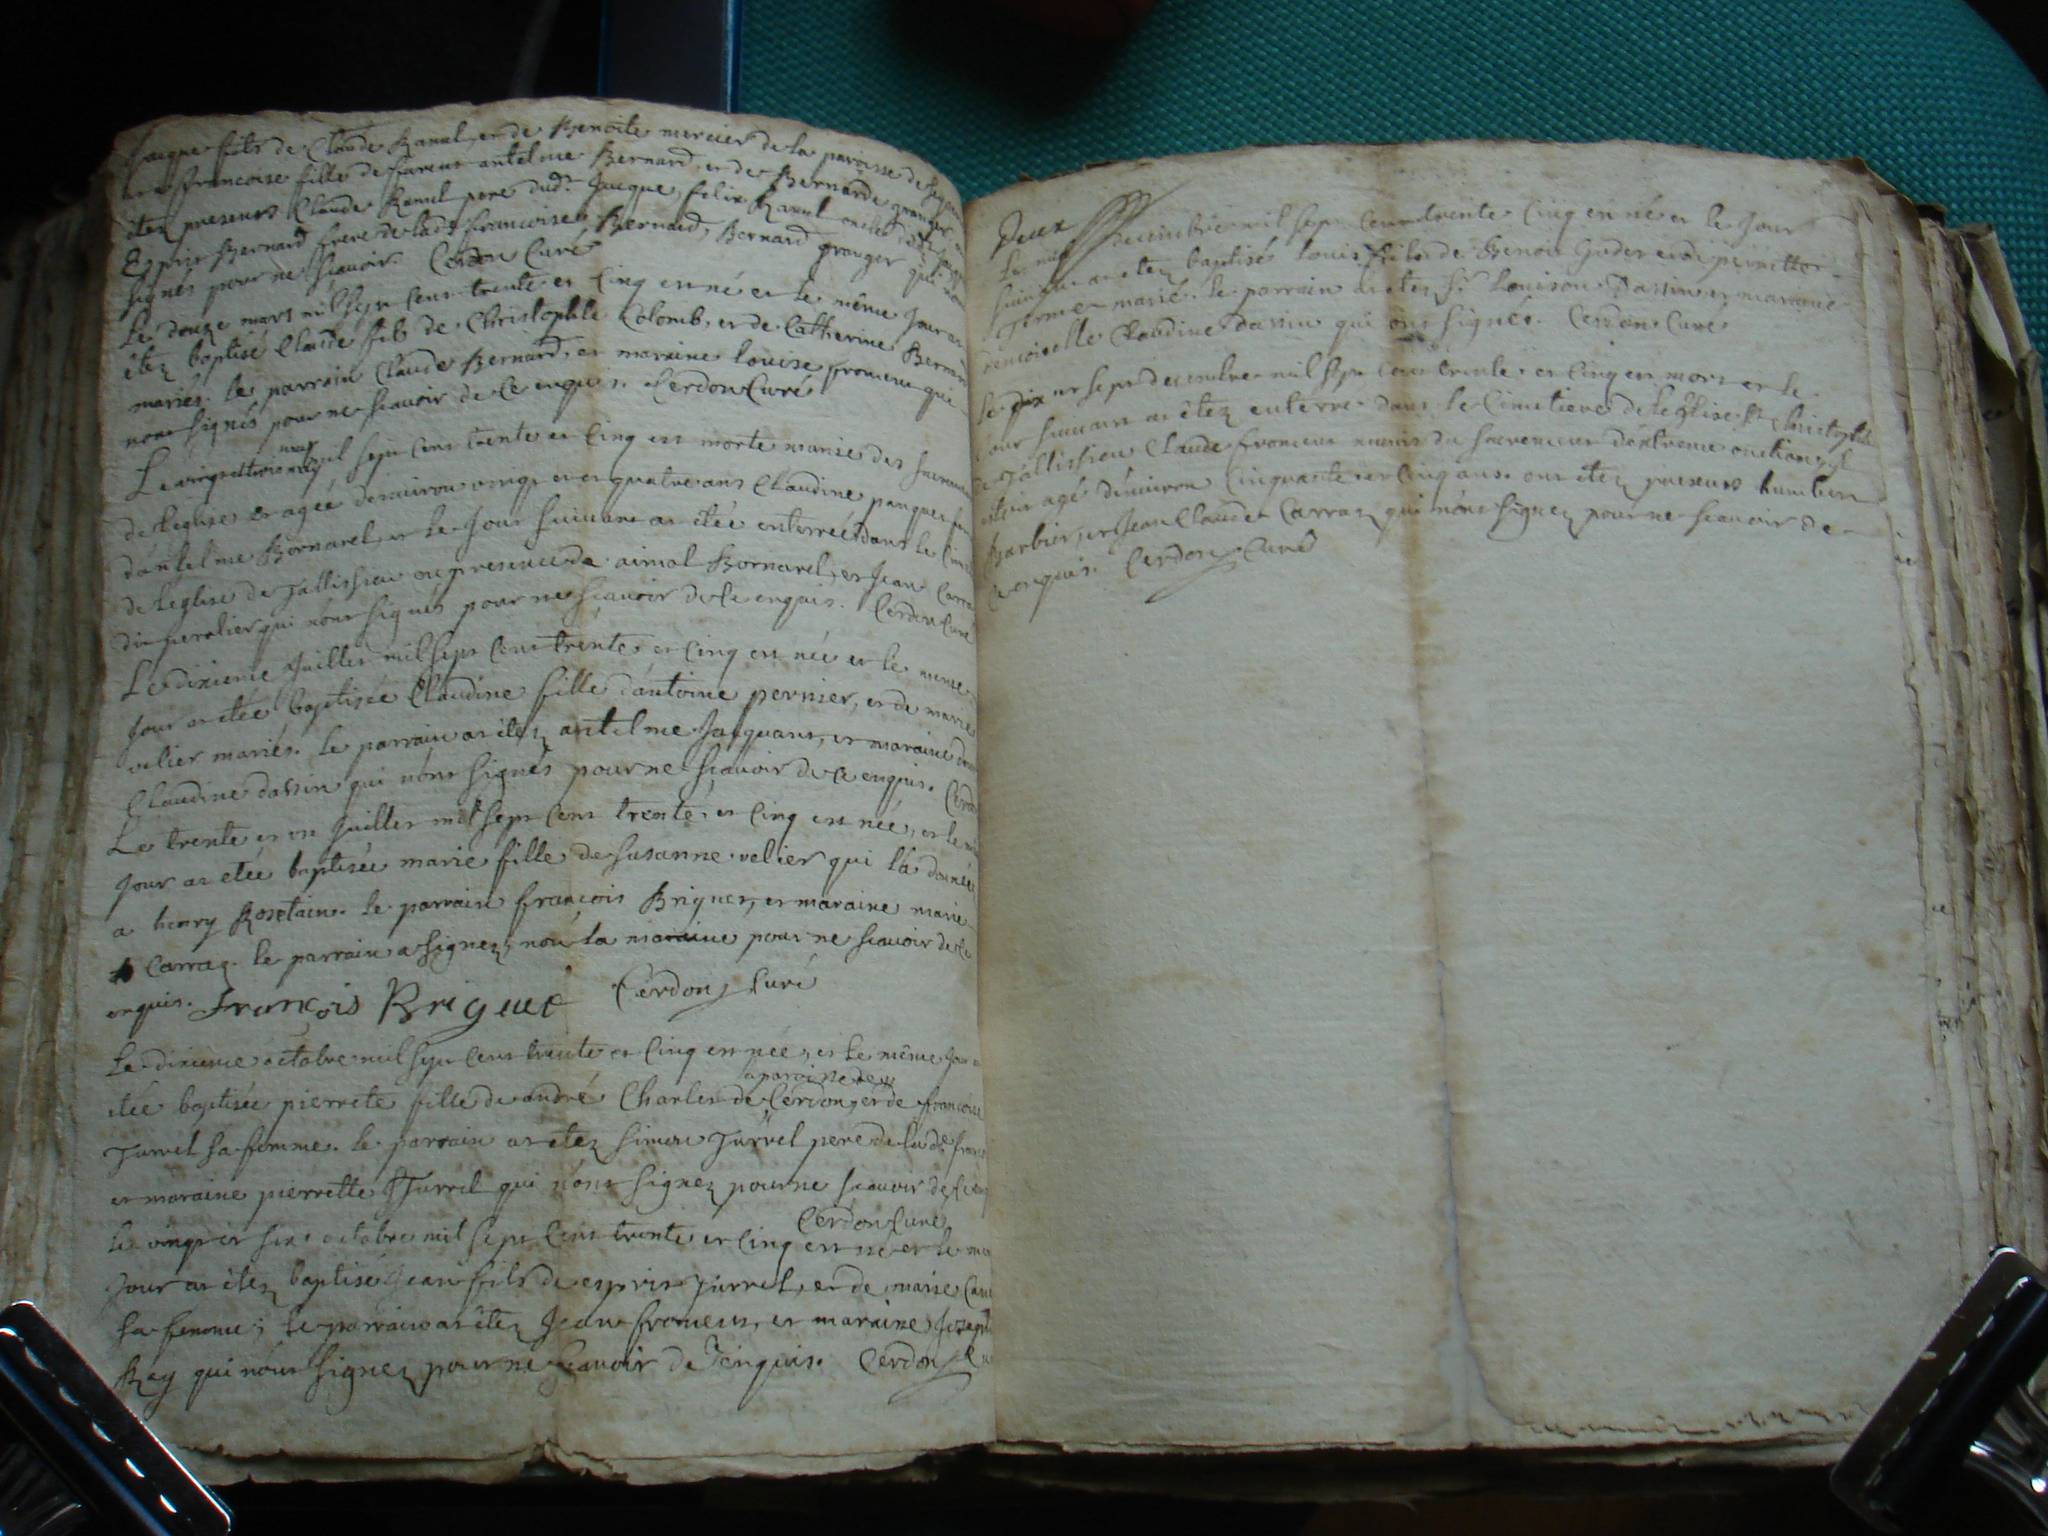 Jacque fils de Claude Ravul, et de Benoite mercier de la paroisse de
et francoise fille de antelme Bernard, et de Bernarde granger
étez presents Claude Ravul pere dudt Jacque, felix Ravul oncle
Esprit Bernard frere de lade francoise Bernard, Bernard granger qui
signés pour ne scavoir. Cerdon Curé
Le douze mars mil sept cent trente et cinq est né et le même Jour at
étez baptisé Claude fils de Christophle Colomb, et de Catherine Bernard
mariés. le parrain Claude Bernard, et maraine louise froment qui
nont signés pour ne scavoir de ce enquis. Cerdon Curé
Le vingt mil sept cent trente et cinq est morte munie des
de leglise et agée denviron vingt et quatre ans Claudine
dantelme Bornarel, et le Jour suivant at étée enterrée dans le
de leglise de Jallissieu en presence de aimal Bornarel, et Jean
dit peralier qui nont signés pour ne scavoir de ce enquis. Cerdon Curé
Le dixieme Juillet mil sept cent trente et cinq est née et le meme
Jour at étée baptisée Claudine fille dantoine pernier, et de marie
velier mariés. le parrain at étez antelme Jacquant, et maraine
Claudine dassin qui nont signés pour ne scavoir de ce enquis.
Le trente et un Juillet mil sept cent trente et cinq est née, et le
Jour at étée baptisée marie fille de Susanne velier qui la donnée
a henry Rosetain. le parrain francois Briguet, et maraine marie
Carraz. le parrain a signez, non la maraine pour ne scavoir de ce
enquis. francois Briguet Cerdon Curé
Le dixieme octobre mil sept cent trente et cinq est née, et le même Jour
étée baptisée pierrete fille de andré Charles de la paroisse de Cerdon, et de francoise
Jurrel sa femme. le parrain at étez simon Jurrel pere de lade
et maraine pierrette Jurrel qui nont signez pour ne scavoir de ce
Cerdon Curé
Le vingt et six octobre mil sept cent trente et cinq est né et le
Jour at étez baptisé Jean fils de esprit Jurrel, et de marie
sa femme; le parrain at étez Jean froment, et maraine
Ray qui nont signez pour ne scavoir de enquis. Cerdon
Deux
Le decembre mil sept cent trente cinq est né et le Jour
suivant at étez baptisé louis fils de Benoit et de pierrette
mariés. le parrain at étez sr louison Dassin et maraine
demoiselle Claudine dassin qui ont signés. Cerdon Curé
Le dix et sept decembre mil sept cent trente et cinq est mort et le
Jour suivant at étez enterré dans le Cimetiere de leglise St Christophle
de Jallissieu Claude froment munis du sacrement dextreme onction, il
etoit agé denviron Cinquante et cinq ans. ont étez presents humbert
Barbier, et Jean Claude Carraz qui nont signez pour ne scavoir de
ce enquis. Cerdon Curé